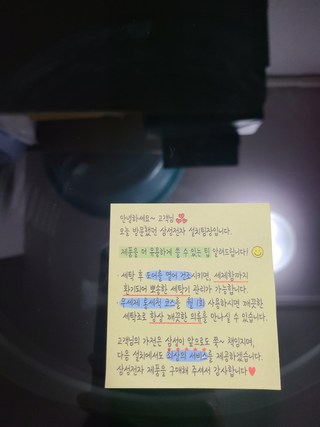 안녕하세요~ 고객님
오늘 방문했던 삼성전자 설치팀장입니다.
제품을 더 유용하게 쓸 수 있는 팁 알려드립니다!
세탁 후 도어를 열어 건조시키면, 세제함까지
환기되어 뽀송한 세탁기 관리가 가능합니다.
무세제 통세척 코스를 월 1회 사용하시면 깨끗한
세탁조로 항상 깨끗한 의류를 만나실 수 있습니다.
고객님의 가전은 삼성이 앞으로도 쭉~ 책임지며,
다음 설치에서도 최상의 서비스를 제공하겠습니다.
삼성전자 제품을 구매해 주셔서 감사합니다